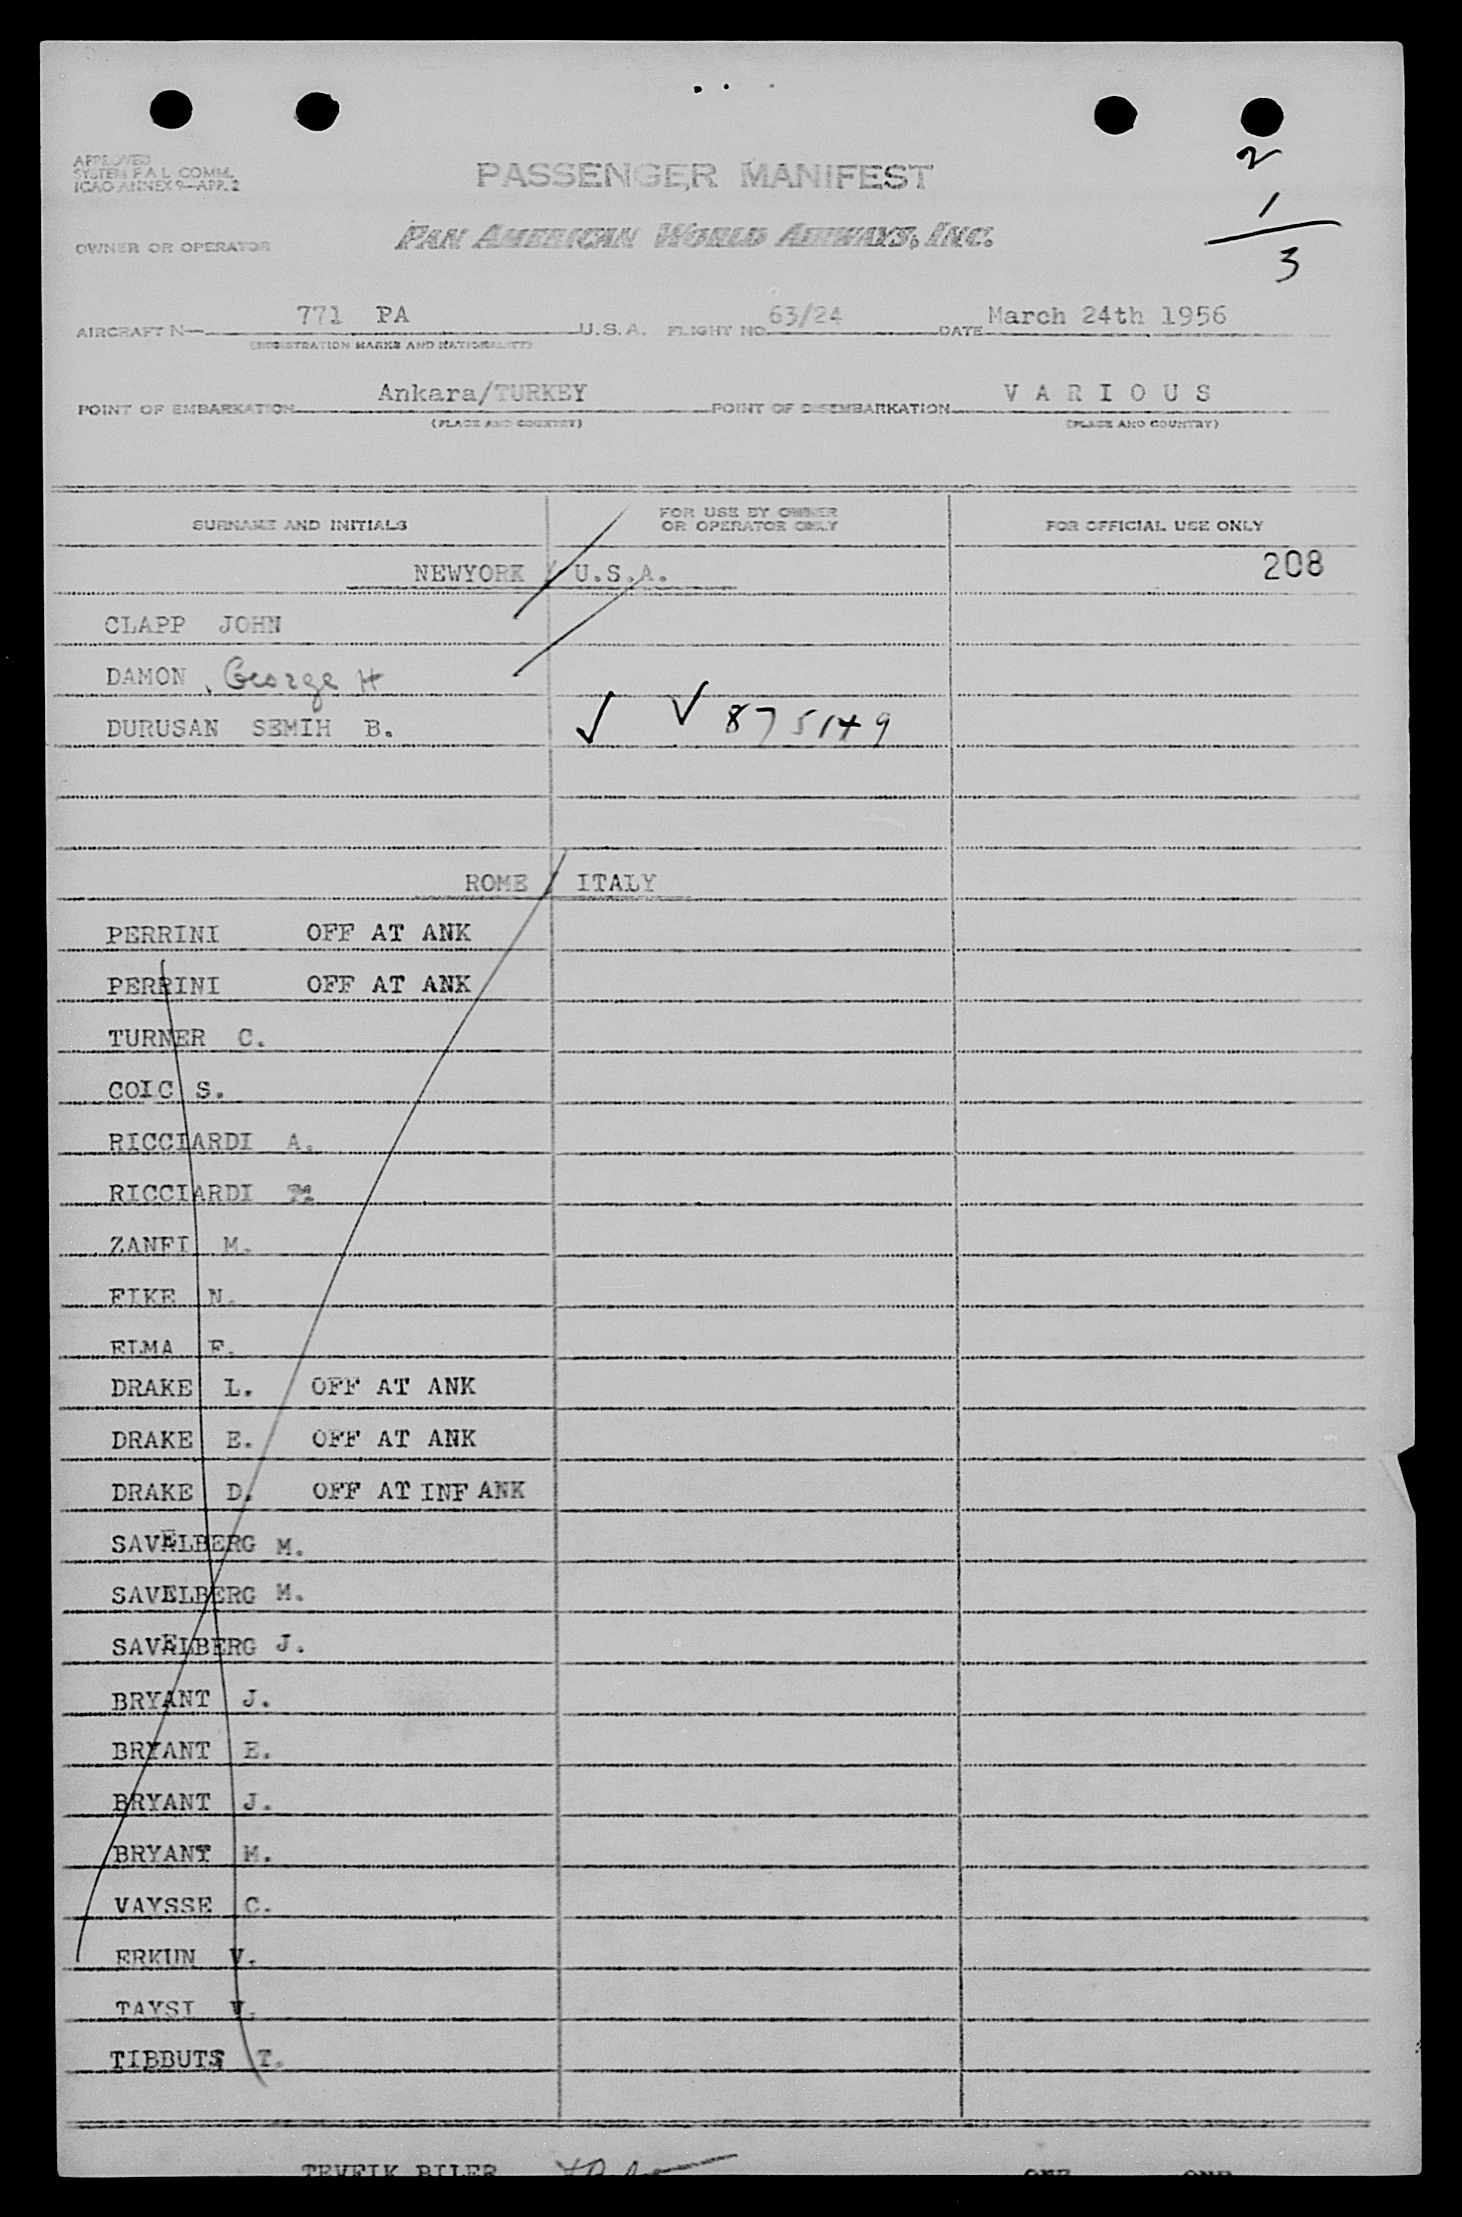 APPROVED
SYSTEM F.A.L. COMM.
ICAO ANNEX 9—APP. 2
PASSENGER MANIFEST
2
1
3
OWNER OR OPERATOR PAN AMERICAN WORLD AIRWAYS, INC.
AIRCRAFT N— 771 PA U.S.A. FLIGHT NO. 63/24 DATE March 24th 1956
(REGISTRATION MARKS AND NATIONALITY)
POINT OF EMBARKATION Ankara/TURKEY POINT OF DISEMBARKATION V A R I O U S
(PLACE AND COUNTRY) (PLACE AND COUNTRY)
SURNAME AND INITIALS FOR USE BY OWNER OR OPERATOR ONLY FOR OFFICIAL USE ONLY
NEWYORK / U.S.A. 208
CLAPP JOHN
DAMON, George H
DURUSAN SEMIH B. ✓ ✓ 875149
ROME / ITALY
PERRINI OFF AT ANK
PERRINI OFF AT ANK
TURNER C.
COIC S.
RICCIARDI A.
RICCIARDI
ZANFI M.
FIKE N.
ELMA F.
DRAKE L. OFF AT ANK
DRAKE E. OFF AT ANK
DRAKE D. OFF AT INF ANK
SAVELBERG M.
SAVELBERG M.
SAVELBERG J.
BRYANT J.
BRYANT E.
BRYANT J.
BRYANT M.
VAYSSE C.
ERKUN V.
TAYSI V.
TIBBUTS T.
TEVFIK BILER